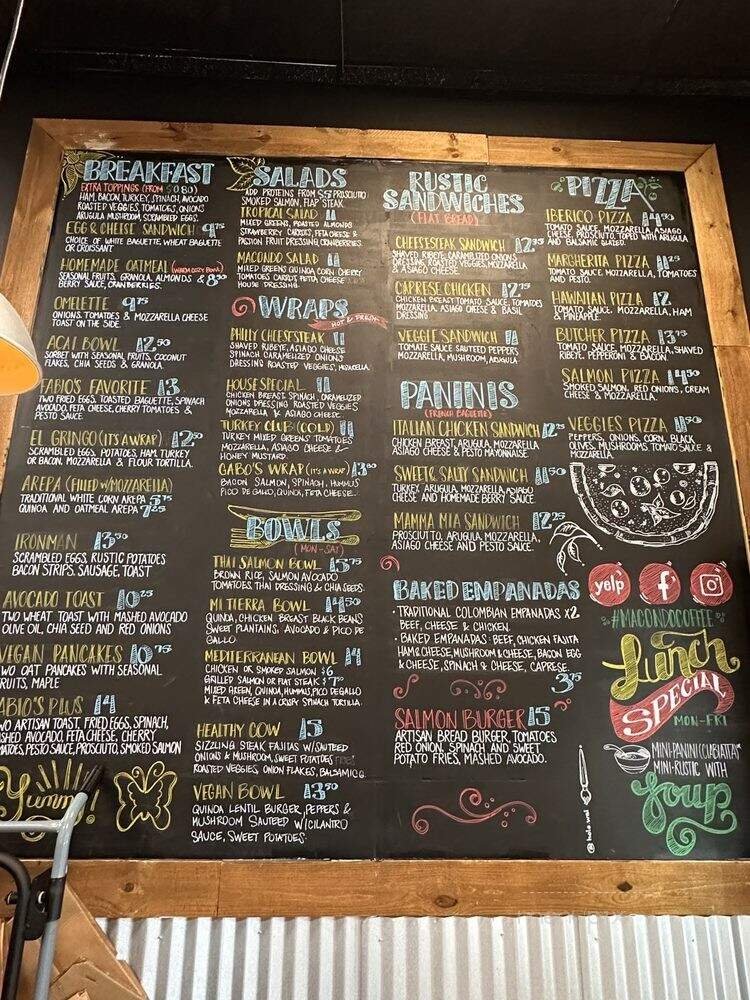 BREAKFAST
EXTRA TOPPINGS (FROM $0.80)
HAM, BACON, TURKEY, SPINACH, AVOCADO
ROASTED VEGGIES, TOMATOES, ONIONS
ARUGULA MUSHROOM, SCRAMBLED EGGS.
EGG & CHEESE SANDWICH 9.75
CHOICE OF WHITE BAGUETTE, WHEAT BAGUETTE
OR CROISSANT
HOMEMADE OATMEAL (WARM COZY BOWL)
SEASONAL FRUITS, GRANOLA, ALMONDS & 8.50
BERRY SAUCE, CRANBERRIES.
OMELETTE 9.75
ONIONS, TOMATOES & MOZZARELLA CHEESE
TOAST ON THE SIDE.
AÇAI BOWL 12.50
SORBET WITH SEASONAL FRUITS, COCONUT
FLAKES, CHIA SEEDS & GRANOLA.
FABIO'S FAVORITE 13
TWO FRIED EGGS, TOASTED BAGUETTE, SPINACH
AVOCADO, FETA CHEESE, CHERRY TOMATOES &
PESTO SAUCE
EL GRINGO (IT'S A WRAP) 12.50
SCRAMBLED EGGS, POTATOES, HAM, TURKEY
OR BACON, MOZZARELLA & FLOUR TORTILLA.
AREPA (FILLED W/MOZZARELLA)
TRADITIONAL WHITE CORN AREPA 5.75
QUINOA AND OATMEAL AREPA 7.25
IRONMAN 13.50
SCRAMBLED EGGS, RUSTIC POTATOES
BACON STRIPS, SAUSAGE, TOAST
AVOCADO TOAST 10.25
TWO WHEAT TOAST WITH MASHED AVOCADO
OLIVE OIL, CHIA SEED AND RED ONIONS
VEGAN PANCAKES 10.75
WO OAT PANCAKES WITH SEASONAL
RUITS, MAPLE
ABIO'S PLUS 14
WO ARTISAN TOAST, FRIED EGGS, SPINACH,
SHED AVOCADO, FETA CHEESE, CHERRY
MATOES, PESTO SAUCE, PROSCIUTO, SMOKED SALMON
Yummy!
SALADS
ADD PROTEINS FROM $5 PROSCIUTO
SMOKED SALMON, FLAP STEAK
TROPICAL SALAD 11
MIXED GREENS, ROASTED ALMONDS
STRAWBERRY CARROTS, FETA CHEESE &
PASSION FRUIT DRESSING, CRANBERRIES.
MACONDO SALAD 11
MIXED GREENS QUINOA CORN CHERRY
TOMATOES CARROT FETA CHEESE
HOUSE DRESSING.
WRAPS
HOT & PRESS
PHILLY CHEESESTEAK 11
SHAVED RIBEYE, ASIAGO CHEESE
SPINACH CARAMELIZED ONIONS
DRESSING ROASTED VEGGIES, MOZARELLA
HOUSE SPECIAL 11
CHICKEN BREAST SPINACH, CARAMELIZED
ONIONS DRESSING ROASTED VEGGIES
MOZZARELLA & ASIAGO CHEESE.
TURKEY CLUB (COLD) 11
TURKEY MIXED GREENS TOMATOES
MOZZARELLA, ASIAGO CHEESE &
HONEY MUSTARD
GABO'S WRAP (IT'S A WRAP) 13.80
BACON SALMON, SPINACH, HUMMUS
PICO DE GALLO, QUINOA, FETA CHEESE.
BOWLS
(MON-SAT)
THAI SALMON BOWL 15.75
BROWN RICE, SALMON AVOCADO
TOMATOES, THAI DRESSING & CHIA SEEDS.
MI TIERRA BOWL 14.50
QUINOA, CHICKEN BREAST BLACK BEANS
SWEET PLANTAINS, AVOCADO & PICO DE
GALLO
MEDITERRANEAN BOWL 14
CHICKEN OR SMOKED SALMON $6
GRILLED SALMON OR FLAT STEAK $7.50
MIXED GREEN, QUINOA, HUMMUS, PICO DEGALLO
& FETA CHEESE IN A CRISPY SPINACH TORTILLA.
HEALTHY COW 15
SIZZLING STEAK FAJITAS W/SAUTEED
ONIONS & MUSHROOM, SWEET POTATOES
ROASTED VEGGIES, ONION FLAKES, BALSAMICO.
VEGAN BOWL 13.50
QUINOA LENTIL BURGER, PEPPERS &
MUSHROOM SAUTEED W/CILANTRO
SAUCE, SWEET POTATOES.
RUSTIC
SANDWICHES
(FLAT BREAD)
CHEESESTEAK SANDWICH 12.95
SHAVED RIBEYE, CARAMELIZED ONIONS
DRESSING, ROASTED VEGGIES, MOZZARELLA
& ASIAGO CHEESE
CAPRESE CHICKEN 12.75
CHICKEN BREAST TOMATO SAUCE, TOMATOES
MOZZARELLA, ASIAGO CHEESE & BASIL
DRESSING
VEGGIE SANDWICH 11
TOMATE SAUCE SAUTEED PEPPERS
MOZZARELLA, MUSHROOM, ARUGULA
PANINIS
(FRENCH BAGUETTE)
ITALIAN CHICKEN SANDWICH 12.25
CHICKEN BREAST, ARUGULA, MOZZARELLA
ASIAGO CHEESE & PESTO MAYONNAISE.
SWEET & SALTY SANDWICH 11.50
TURKEY, ARUGULA, MOZZARELLA, ASIAGO
CHEESE AND HOMEMADE BERRY SAUCE
MAMMA MIA SANDWICH 12.25
PROSCIUTTO, ARUGULA, MOZZARELLA,
ASIAGO CHEESE AND PESTO SAUCE.
BAKED EMPANADAS
· TRADITIONAL COLOMBIAN EMPANADAS X2
BEEF, CHEESE & CHICKEN.
· BAKED EMPANADAS: BEEF, CHICKEN FAJITA
HAM & CHEESE, MUSHROOM & CHEESE, BACON EGG
& CHEESE, SPINACH & CHEESE, CAPRESE.
3.75
SALMON BURGER 15
ARTISAN BREAD BURGER, TOMATOES
RED ONION, SPINACH AND SWEET
POTATO FRIES, MASHED AVOCADO.
PIZZA
IBERICO PIZZA 14.50
TOMATO SAUCE, MOZZARELLA, ASIAGO
CHEESE, PROSCIUTO, TOPED WITH ARUGULA
AND BALSAMIC GLAZED.
MARGHERITA PIZZA 11.25
TOMATO SAUCE, MOZZARELLA, TOMATOES
AND PESTO.
HAWAIIAN PIZZA 12
TOMATO SAUCE, MOZZARELLA, HAM
& PINEAPPLE.
BUTCHER PIZZA 13.75
TOMATO SAUCE, MOZZARELLA, SHAVED
RIBEYE, PEPPERONI & BACON.
SALMON PIZZA 14.50
SMOKED SALMON, RED ONIONS, CREAM
CHEESE & MOZZARELLA.
VEGGIES PIZZA 11.50
PEPPERS, ONIONS, CORN, BLACK
OLIVES, MUSHROOMS, TOMATO SAUCE &
MOZZARELLA.
yelp f
#MACONDOCOFFEE
Lunch
SPECIAL
MON-FRI
MINI-PANINI (CUBIATTA)
MINI-RUSTIC WITH
Soup